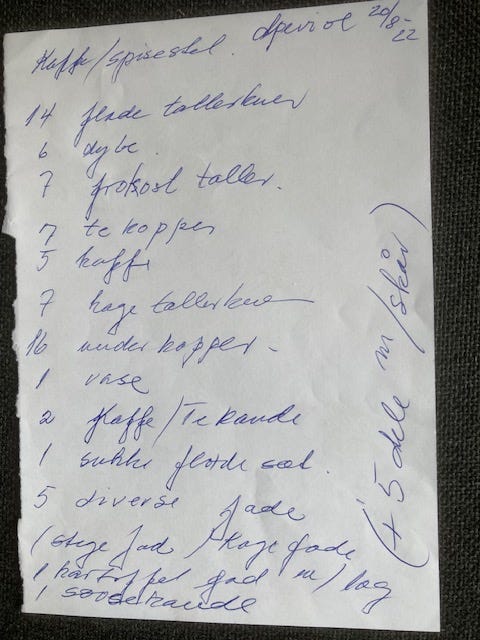 Kaffe/spisestel.
20/8-22
14 flade tallerkner
6 dybe.
7 frokost taller.
7 te kopper
5 kaffe
7 kage tallerkner
16 underkopper-
1 vase
2 Kaffe/Te kande
1 sukke fløde sæt.
5 diverse fade
(stege fad / kage fade
1 kartoffel fad m/låg
1 sovsekande
(+ 5 dele m/skår)